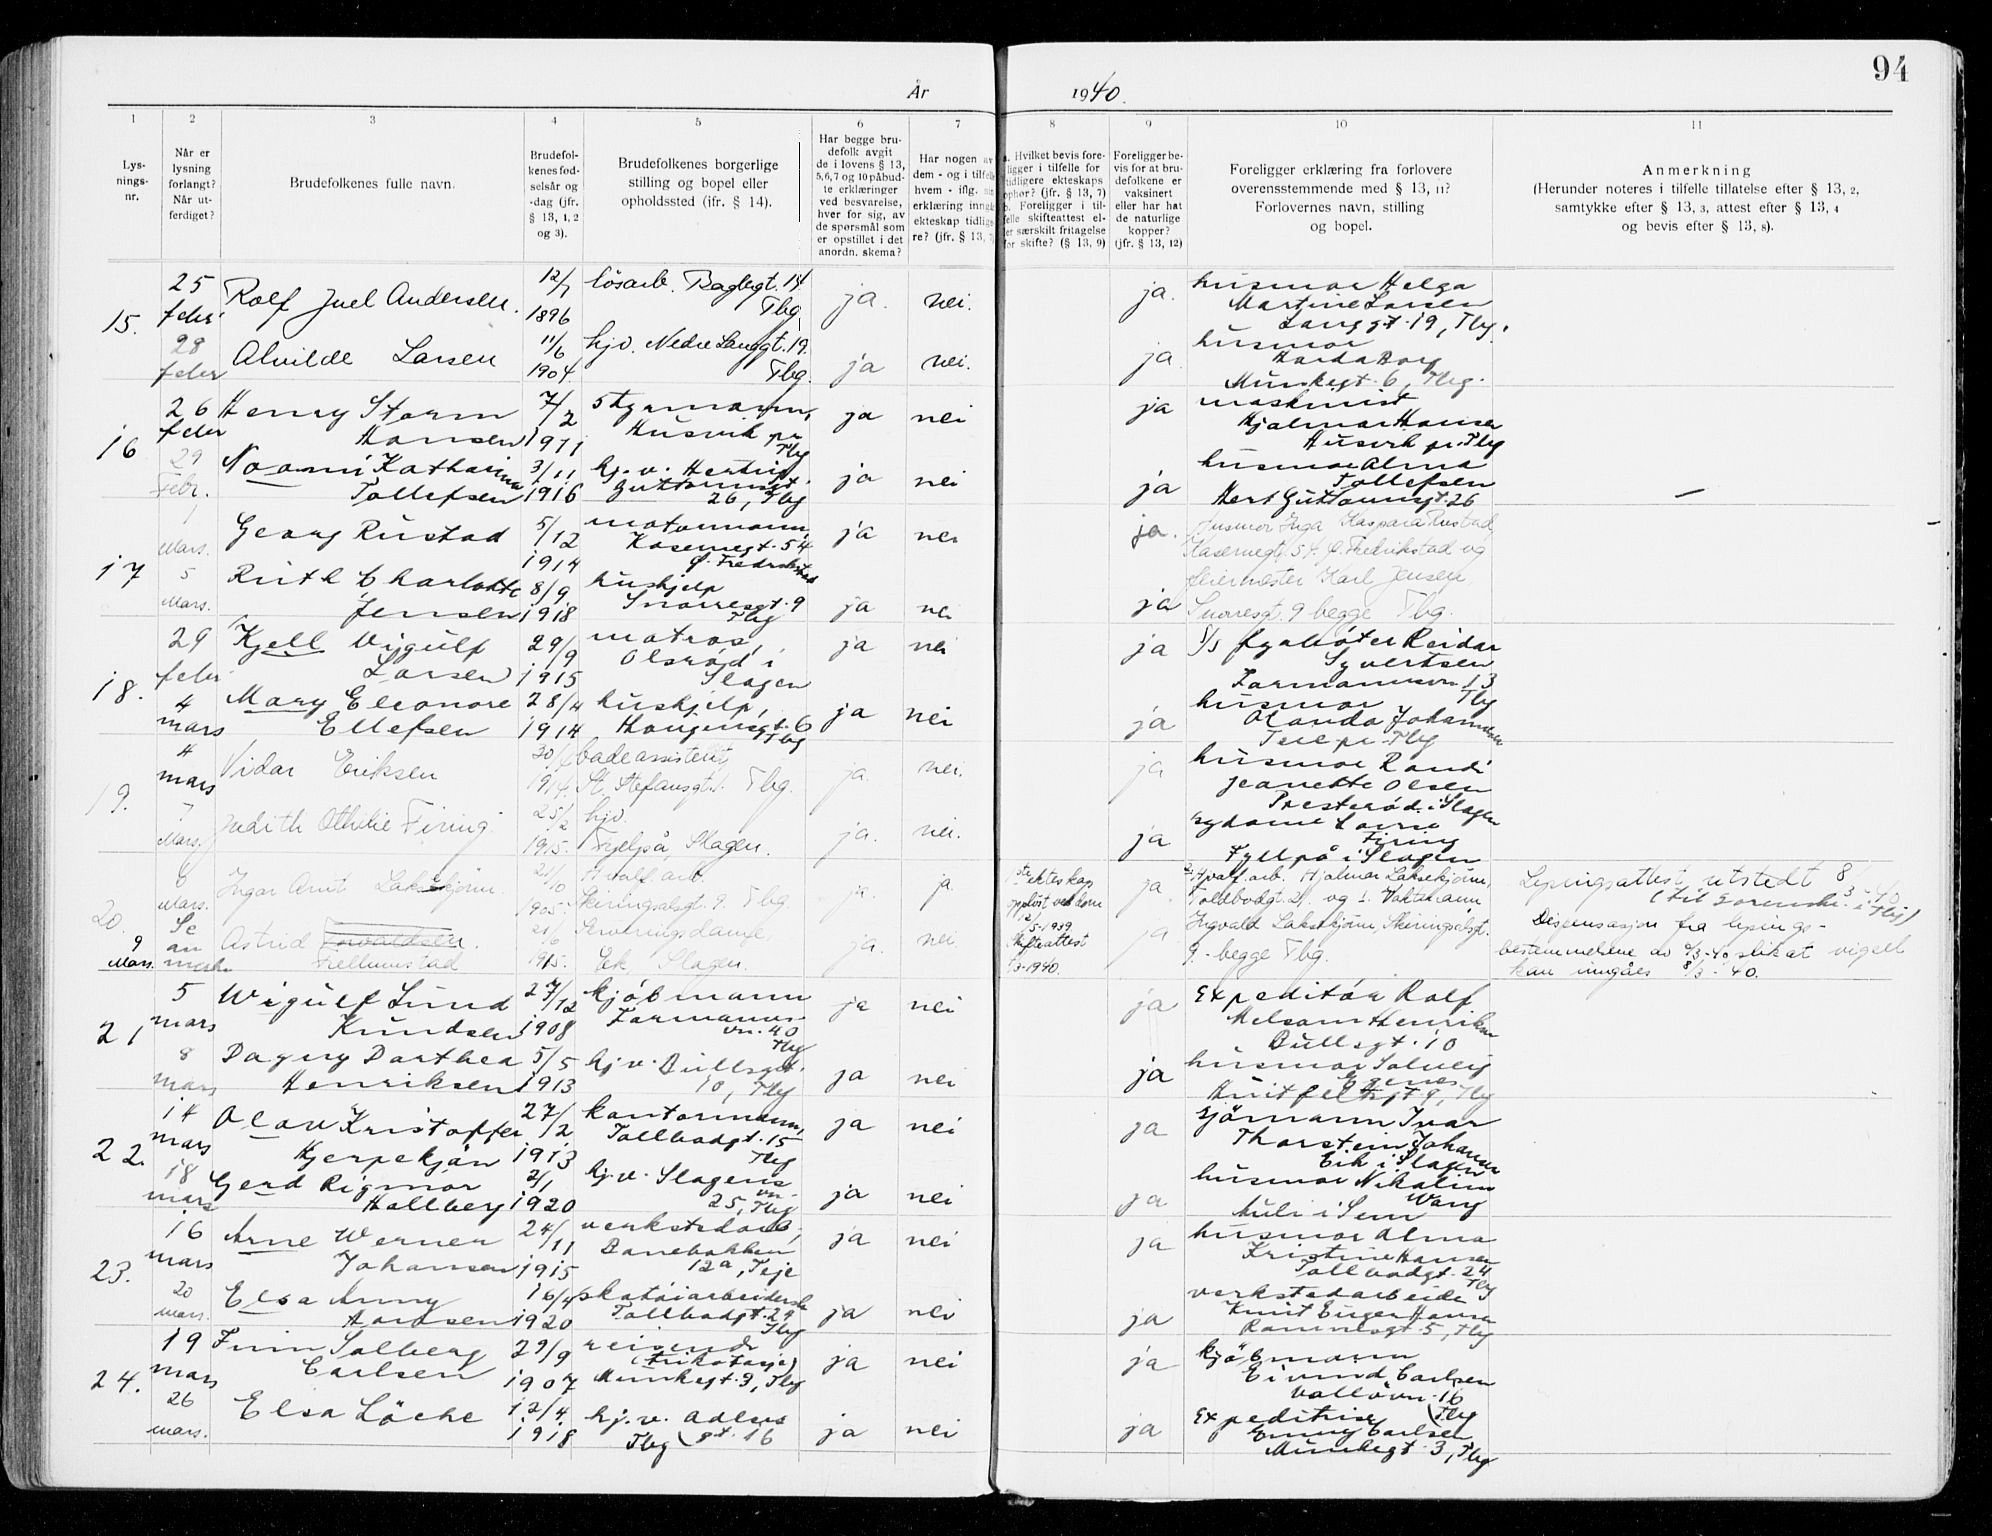 94
År 1940.
1 2 3 4 5 6 7 8 9 10 11
Lys-
nings-
nr.
Når er
lysning
forlangt?
Når ut-
ferdiget?
Brudefolkenes fulle navn.
Brudefol-
kenes fød-
selsår og
-dag (jfr.
§ 13, 1, 2
og 3).
Brudefolkenes borgerlige
stilling og bopel eller
opholdssted (ifr. § 14).
Har begge bru-
defolk avgit
de i lovens § 13,
5,6,7 og 10 påbud-
te erklæringer
ved besvarelse,
hver for sig, av
de spørsmål som
er opstillet i det
anordn. skema?
Har nogen av
dem - og i tilfelle
hvem - iflg. sin
erklæring inngå
ekteskap tidlige-
re? (jfr. § 13,
a. Hvilket bevis fore-
ligger i tilfelle for
tidligere ekteskaps
ophør? (jfr. § 13, 7)
b. Foreligger i til-
felle skifteattest el-
ler særskilt fritagelse
for skifte? (§ 13, 9)
Foreligger be-
vis for at bru-
defolkene er
vaksinert
eller har hat
de naturlige
kopper?
(jfr. § 13, 12)
Foreligger erklæring fra forlovere
overensstemmende med § 13, 11?
Forlovernes navn, stilling
og bopel.
Anmerkning
(Herunder noteres i tilfelle tillatelse efter § 13, 2,
samtykke efter § 13, 3, attest efter § 13, 4
og bevis efter § 13, 8).
15.
25 febr Rolf Juel Andersen. 12/7 1896 løsarb. Baglergt. 14 Tbg ja. nei. ja. husmor Helga
Martine Larsen
Langgt. 19, Tbg.
28 febr Alvilde Larsen 11/6 1904 hjv. Nedre Langgt. 19. Tbg. ja nei. ja. husmor
Munkegt. 6, Tbg.
16
26 febr Henry Storm Hansen 7/2 1911 styrmann, Husvik pr Tbg ja nei ja maskinist
Hjalmar Hansen
Husvik pr. Tbg
29 Febr. Noomi Katharina Tollefsen 3/11 1916 hj. v. Hertug Guttormsgt. 26, Tbg ja nei ja husmor Alma
Tollefsen
Hert Guttormsgt. 26
17
1 Mars. Georg Rustad 5/12 1914 motormann, Kasernegt. 54 Ø. Fredrikstad ja nei ja. husmor Inga Kaspara Rustad,
Kasernegt. 54, Ø. Fredrikstad og
5 Mars. Ruth Charlotte Jensen 8/9 1918 hushjelp Snorresgt. 9 Tbg ja nei ja feiermester Karl Jensen,
Snorresgt. 9 begge Tbg.
18.
29 febr Kjell Wigulf Larsen 29/9 1915 matros, Olsrød i Slagen ja nei ja s/s fyrbøter Reidar
Syvertsen
Farmannsvn 13
Tbg
4 mars Mary Eleonore Ellefsen 28/4 1914 hushjelp, Haugensgt. 6 Tbg ja nei ja husmor
Olanda Johannsen
Teie pr. Tbg
19.
4 mars Vidar Eriksen 1914. badeassistent, St. Stefansgt. 1. Tbg. ja. nei. ja husmor Randi
Jeanette Olsen
Presterød i Slagen
7 Mars. Judith Othilie Firing 25/2 1915. hjv. Fyllpå, Slagen. ja. nei. ja sydame
Firing
Fyllpå i Slagen
20.
8 Mars. Ingar Arnt Lakskjønn 21/10 1905. Hvalf. arb. Skiringsalsgt. 9. Tbg. ja. ja 1ste ekteskap
opløst ved dom
12/5-1939.
Skifteattest
1/3-1940. ja Hvalf. arb. Hjalmar Lakskjønn,
Tollbodgt. og
Ingvald Lakskjønn Skiringsalsgt.
9. - begge Tbg.
Lysningsattest utstedt 8/3-40
Dispensasjon fra lysnings-
bestemmelsene av 8/3-40, slik at vigsel
kan inngåes 8/3-40.
9 Mars. Se anmerkn Astrid Torvaldsen. Tellumstad 21/6 1915. Serveringsdame, Eik, Slagen. ja. nei. ja
21
5 mars Wigulf Lund Knudsen 27/12 1908 kjøbmann Farmanns-vn. 40 Tbg ja nei ja Expeditør Rolf
Melsom Henriksen
Bullsgt. 10
8 mars Dagny Dorthea Henriksen 5/5 1913 hj v. Bullsgt. 10, Tbg ja nei ja husmor Solveig
Egenes
Huitfeldtsgt 9, Tbg
22.
14 mars Olav Kristoffer Hjerpekjøn 27/2 1913 kontormann, Tollbodgt. 15 Tbg ja nei ja sjømann Ivar
Thorstein Johansen
Eik i Slagen
18 mars Gerd Rigmor Hallberg 2/1 1920 hj. v. Slagens vn. 25, Tbg ja nei ja husmor Nikoline
Wang
Auli i Sem
23.
16 mars Arne Werner Johansen 24/11 1915 verkstedarb, Banebakken 12a, Teje ja nei ja husmor Alma
Kristine Hansen
Tollbodgt. 24
Tbg
20 mars. Elsa Anny Hansen 16/4 1920 skotøiarbeiderske Tollbodgt. 29 Tbg ja nei ja verkstedarbeider
Knut Eugen Hansen
Rammesgt. 5, Tbg
24.
19 mars Finn Solberg Carlsen 29/9 1907 reisende (trikotasje) Munkegt. 3, Tbg ja nei ja kjøbmann
Eivind Carlsen
Valløvn. 16
Tbg
26 mars. Elsa Løcke 12/4 1918 hj. v. Adlers gt. 16 Tbg ja nei ja Expeditrise
Emmy Carlsen
Munkegt. 3, Tbg